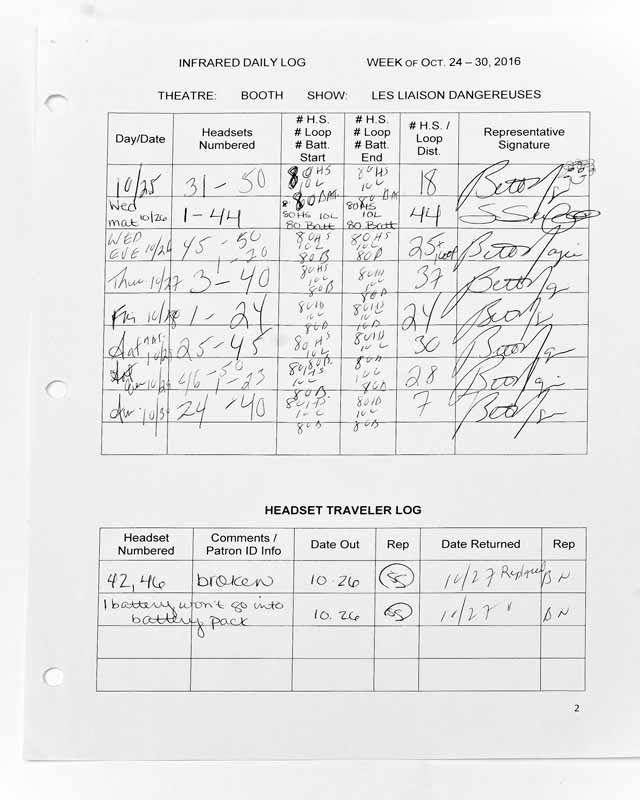 INFRARED DAILY LOG WEEK OF OCT. 24 – 30, 2016
THEATRE: BOOTH SHOW: LES LIAISON DANGEREUSES
Day/Date Headsets Numbered # H.S. # Loop # Batt. Start # H.S. # Loop # Batt. End # H.S. / Loop Dist. Representative Signature
10/25 31 - 50 80 HS 10L 80 HS 10L 18
Wed mat 10/26 1 - 44 80 HS 10L 80 Batt 80 HS 10L 80 Batt 44
WED EVE 10/26 45 - 50 1 - 20 80 HS 10L 80B 80 HS 10L 80B 25+
Thur 10/27 3 - 40 80 HS 10L 80B 10L 80B 37
Fri 10/28 1 - 24 10L 80B 10L 80B 24
Sat mat 25 - 45 80 HS 10L 30
46 - 50 1 - 23 10L 80B 10L 80B 28
Sun 10/30 24 - 40 10L 80B 10L 80B 7
HEADSET TRAVELER LOG
Headset Numbered Comments / Patron ID Info Date Out Rep Date Returned Rep
42, 46 broken 10.26 SS 10/27 Replaced BN
1 battery won't go into battery pack 10.26 SS 10/27 " BN
2